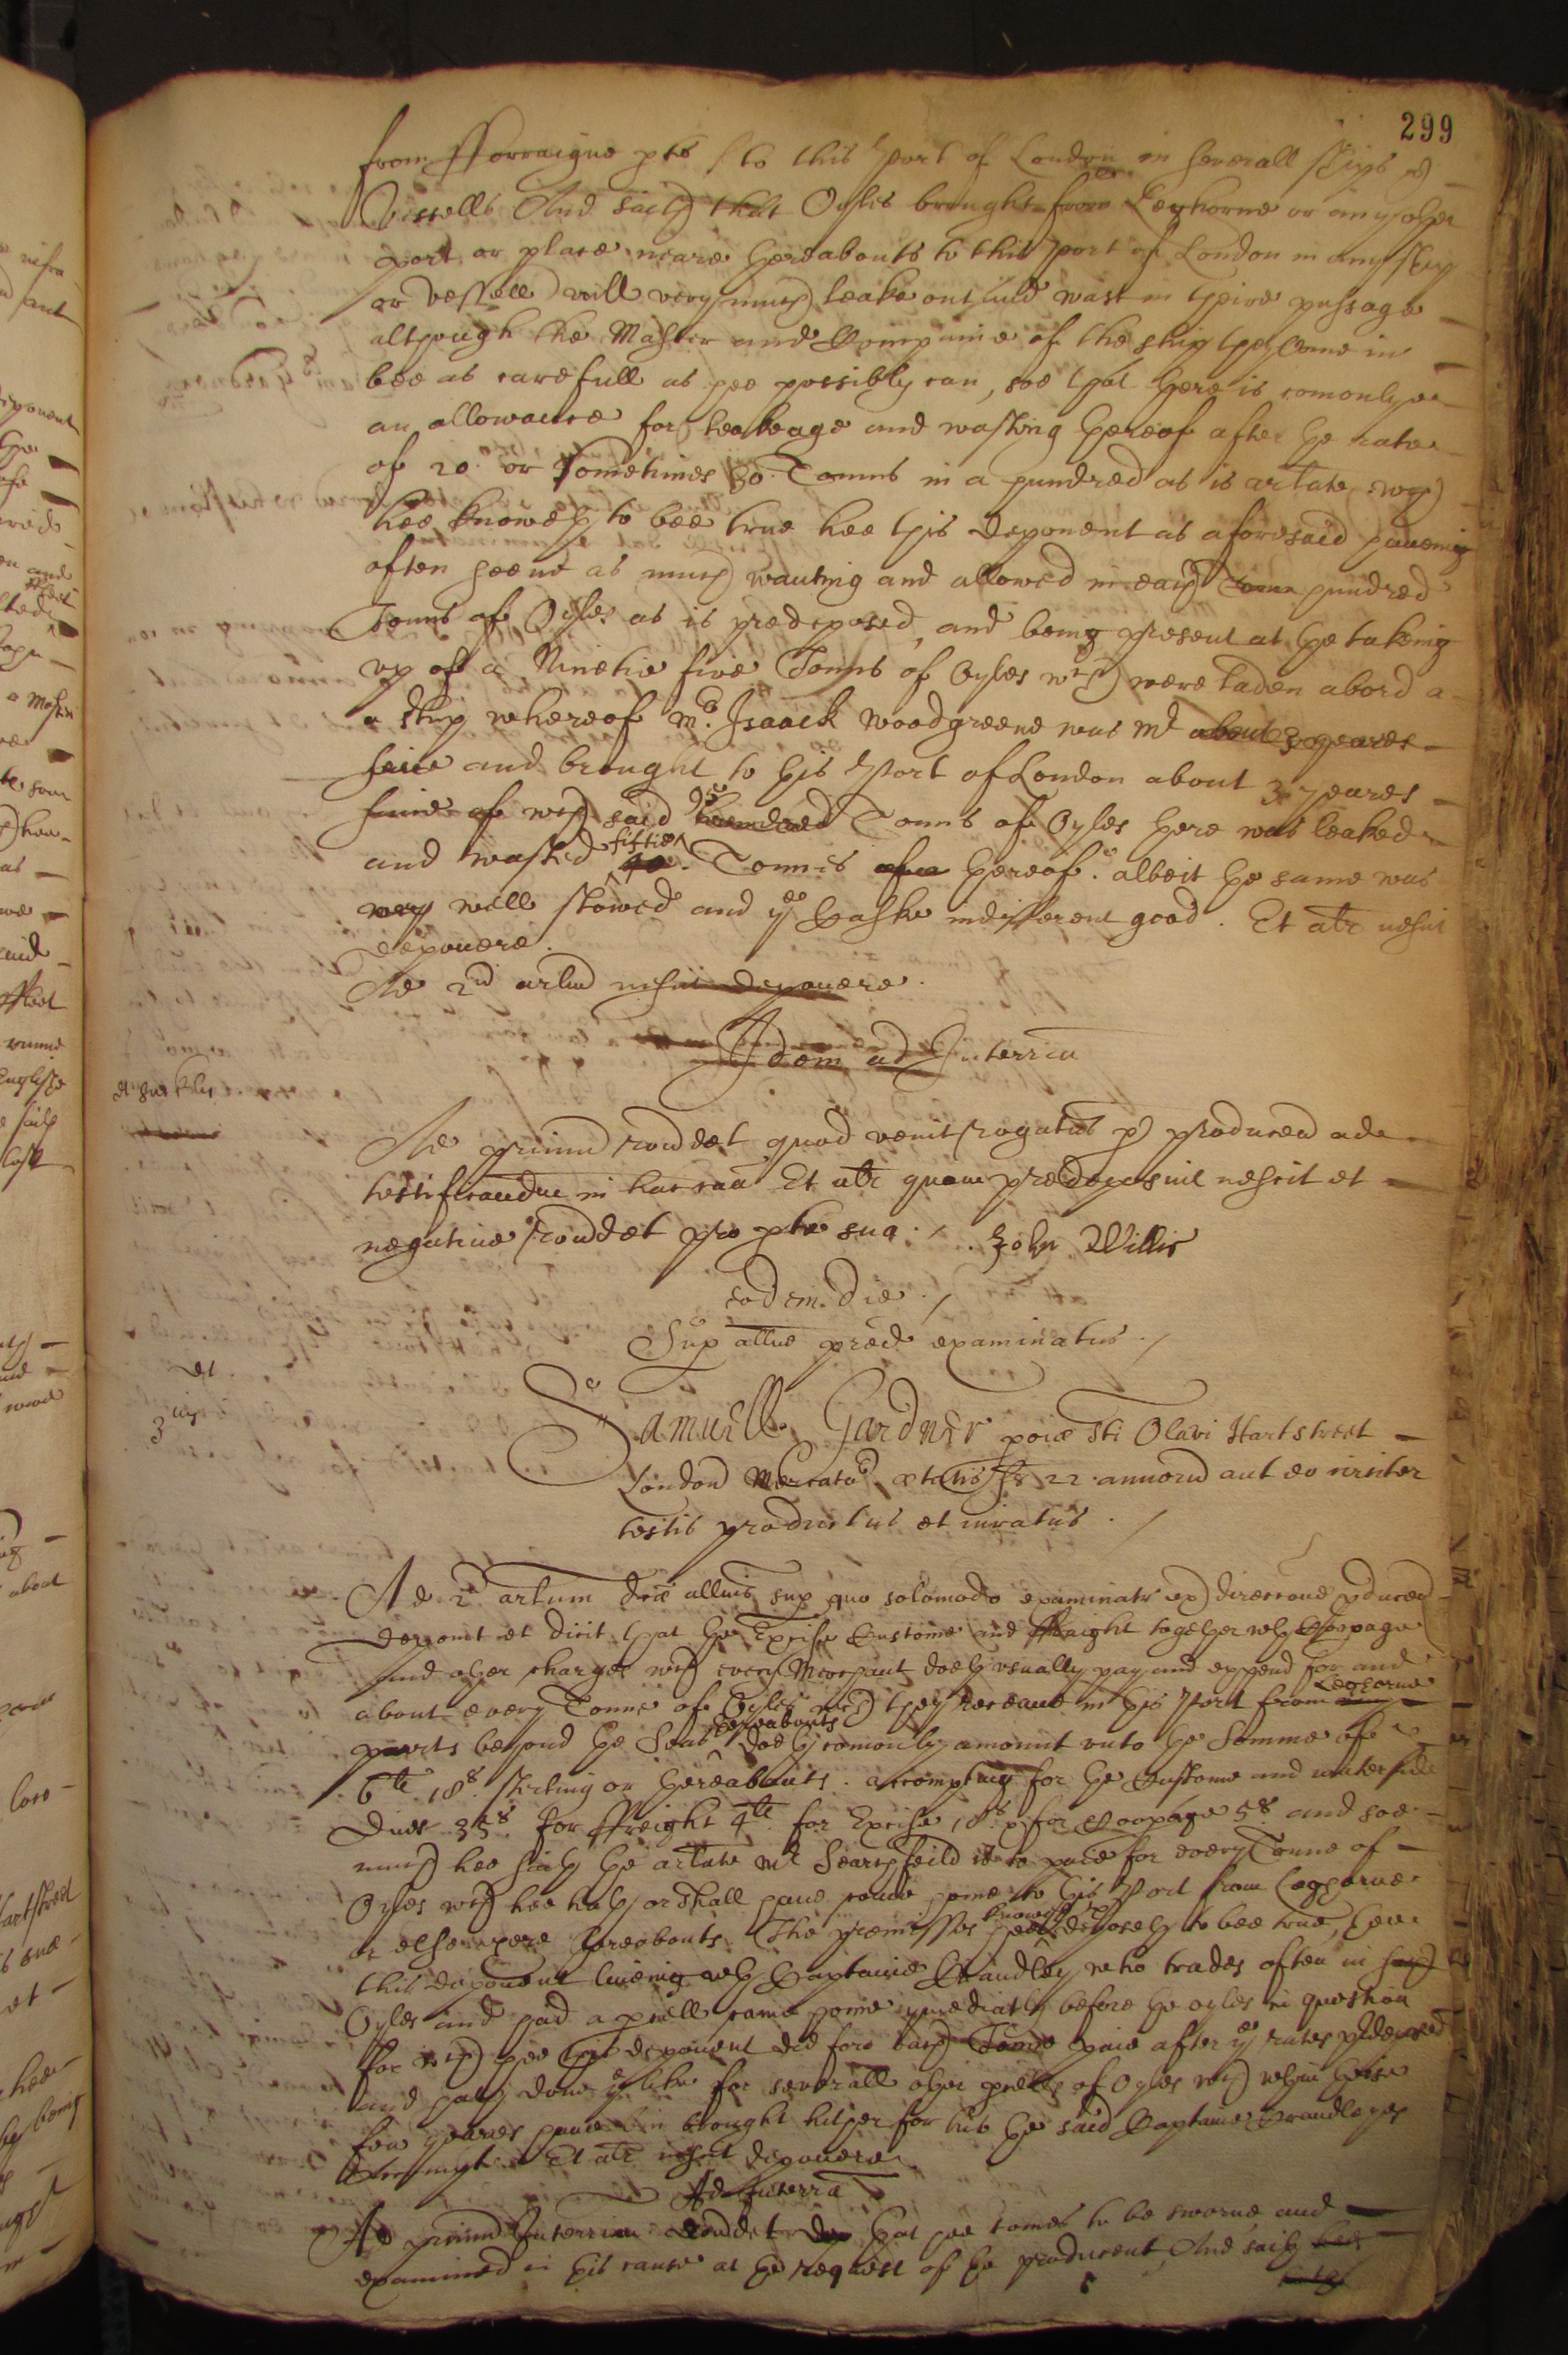 299
from fforraigne pts to this Port of London in severall ships &
Vissells And saith that Oyles brought from Leghorne or any other
port or place neare thereabouts to this Port of London in any ship
or vessell will very much leake out and wast in theire passage
although the Master and Companie of the ship they come in
bee as carefull as hee possibly can, soe that there is comonly
an allowance for leakage and wasting thereof after the rate
of 20. or sometimes 30. Tonns in a hundred as is artate, wch
hee knoweth to bee true hee this deponent as aforesaid haueing
often seene as much wanting and allowed in each Tonn hundred
Tonns of Oyles as is predeposed, and being present at the takeing
vp of a Ninetie five Tonns of Oyles wch were laden abord a
a ship whereof mr. Isaack Woodgreene was Mr about 3 yeares
since and brought to this Port of London about 3 yeares
since of wch said 95 hundred Tonns of Oyles there was leaked
and wasted fiftie Tonnes thereof. albeit the same was
very well stowed and ye Caske indifferent good. Et alr nescit
deponere.
Ad 2um artlum nescit deponere.
Idem ad Interria
Ad primum rondet quod venit rogatus p producen ad
testificandum in hac caa Et alr quam predeposuit nescit et
negative rondet pro pte sua. John Willis
eodem. die.
Sup allue pred. examinatus.
A.
3us
Samuell Gardner poiæ Sti Olavi Hartstreet
London Mercator ætatis 22 annorum aut eo circiter
testis productus et iuratus.
Ad 2. artlum dcæ allnis sup quo solomodo examinatr ex direccone pducen
deponit et dicit that the Excise Custome and ffraight together with Coopage
and other charges wch every Merchant doeth vsually pay and expend for and
about every Tonne of Oyles wch they receaue in this Port from Leghorne
parts beyond the Seas thereabouts doeth comonly amount vnto the Somme of
6li 18s sterling or thereabouts. accompting for the Custome and waterside
dues 35s. for ffreight 4li. for Excise 18s. for Coopage 5s. and soe
much hee saith the artate Mr Searchfeild is to paie for every Tonne of
Oyles wch hee hath or shall haue come home to this Port from Leghorne
or elsewhere thereabouts. The premisses hee knoweth deposeth to bee true, hee
this deponent liueing with Captaine Crandley who trades often in such
Oyles and had a prcell came home imediatly before the oyles in question
for wch hee this deponent did for each Tonne paie after ye rates pdeposed
and hath done ye like for severall other prcells of Oyles wch within these
few yeares haue bin brought hither for his the said Captaine Crandleyes
Accompt. Et alr nescit deponere.
Ad Interria
Ad primum Interrium rondet that hee comes to be sworne and
examined in this cause at the request of the producent, And saith hee